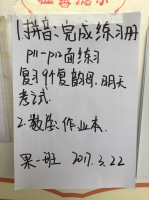 温馨提示
1.拼音:完成练习册
P11-P12面练习
复习9个复韵母.明天
考试.
2.数学:作业本.
果一班 2017.3.22